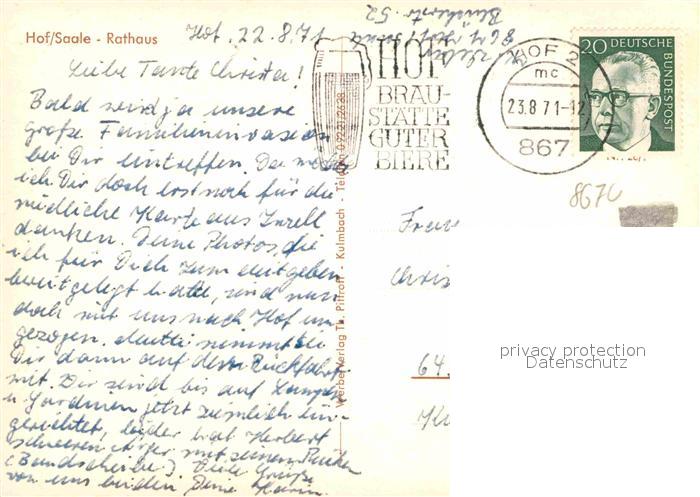 Hof/Saale - Rathaus
Hof, 22.8.71
Liebe Tante Christa!
Bald wird ja unsere
große Familieninvasion
bei Dir eintreffen. Da möchte
ich Dir doch erst noch für die
niedliche Karte aus Inzell
danken. Deine Photos, die
ich für Dich zum mitgeben
bereitgelegt hatte, sind nun
doch mit uns nach Hof um-
gezogen. Mutti nimmt sie
Dir dann auf der Rückfahrt
mit. Wir sind bis auf Lampen
u. Gardinen jetzt ziemlich ein-
gerichtet, leider hat Herbert
schweren Ärger mit seinem Rücken
(Bandscheibe). Viele Grüße
von uns beiden Deine Karin.
Werbe-Verlag Th. Piffroff - Kulmbach - Telefon
HOF
BRAU-
STÄTTE
GUTER
BIERE
HOF 2
mc
23.8.71-12
867
20 DEUTSCHE
BUNDESPOST
8670
52
Frau
Chris
64
privacy protection
Datenschutz